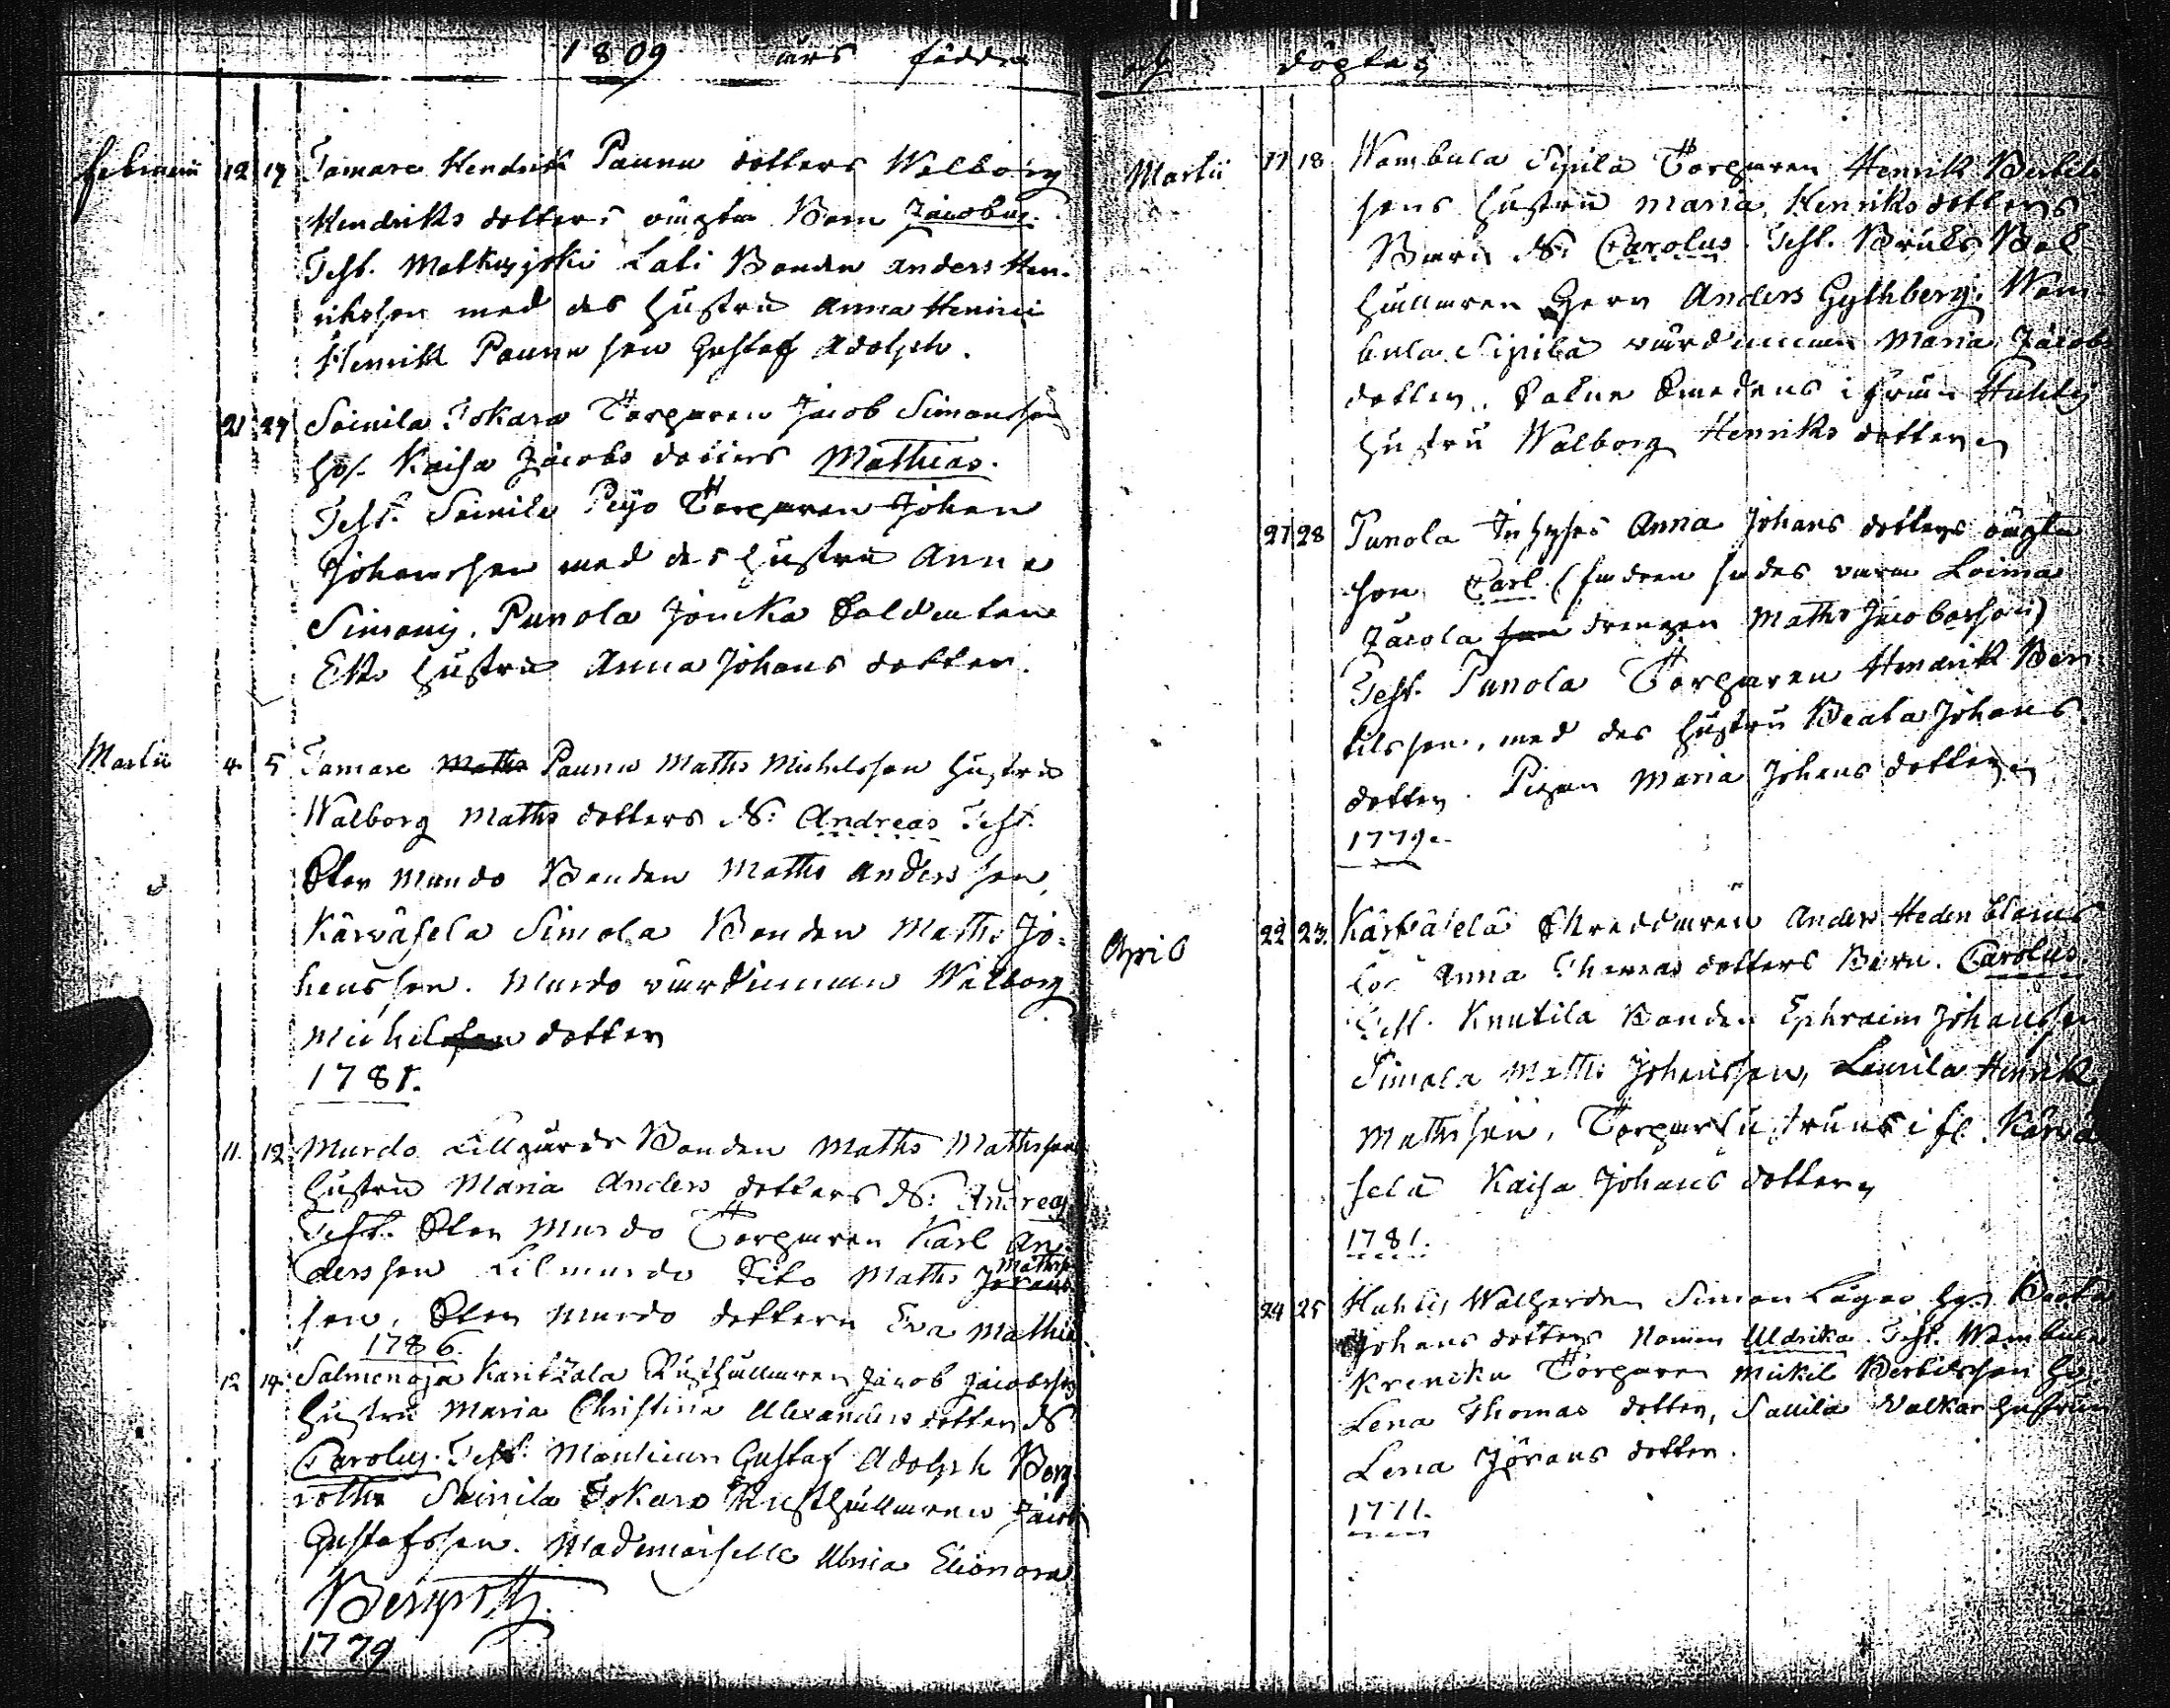 1809 års födde
Februarii 12 17 Tamare Hendrik Paunu dotters Walborg
Hendriks dotters oägta Barn Jacobus.
Test. Matkusjoki Lali Bonden Anders Hen-
rikson med des hustru Anna Henrici
Henrik Paunu son Gustaf Adolph.
21 27 Soinila Tokara Torparen Jacob Simonsson
hos. Kaisa Jacobs dotters Mathias.
Test. Soinila Torparen Johan
Johansson med des hustru Anna
Simons. Punola Jouka Soldaten
Eks hustru Anna Johans dotter.
Martii 4. 5 Tamare Maths Paunu Maths Michelsson hustru
Walborg Maths dotters d.S: Andreas Test.
Stor Murdo Bonden Maths Anders son,
Kärväselä Simola Bonden Maths Jo-
hansson. Murdo värdinnan Walborg
Michels dotter
1781.
11. 12. Murdo Lillgårds Bonden Maths Mathsson
hustru Maria Anders dotters d.S: Andreas
Test. Stor Murdo Torparen Karl An-
dersson Lilmurdo Maths Maths
son, Stor Murdo dottern Eva Mathie
1786.
12 14. Salmenoja Karitzala Rusthållaren Jacob Jacobsson
hustru Maria Christina Alexanders dotter d.S
Carolus. Test. Gustaf Adolph Berg-
roth Soinila Tokara Rusthållaren Jacob
Gustafsson. Mademoiselle Ulrica Elionora
Bergroth.
1779
och döptes
Martii 17 18 Wambula Sipilä Torparen Henrik Bertils
sons hustru Maria Henriks dotters
Barn d.S: Carolus. Test. Bruks Bok
hållaren Herr Anders Gythberg, Wam-
bula Sipilä värdinnan Maria Jacobs
dotter, Smedens ifrån Huhtis
hustru Walborg Henriks dotter
27 28 Punola Inhyses Anna Johans dotters oägta
son Carl (fadren sades vara Loima
Jacola drengen Maths Jacobsson)
Test. Punola Torparen Hendrik Ber-
tilsson, med des hustru Beata Johans
dotter. Pigan Maria Johans dotter
1779.
April 22 23. Kärväselä Skreddaren Anders Hedenbloms
hos Anna Thomas dotters Barn. Carolus
Test. Knutila Bonden Ephraim Johansson
Simola Maths Johansson, Laurila Henrik
Mathsson, Torpar hustrun i fl. Kärvä
selä Kaisa Johans dotter
1781.
24 25 Huhtis Walherden Simon Lagas hos Beata
Johans dotters Namn Uldrika. Test. Wambula
Krencku Torparen Mickel Bertilsson ho.
Lena Thomas dotter, Sallila Valkar hustrun
Lena Jörans dotter.
1771.